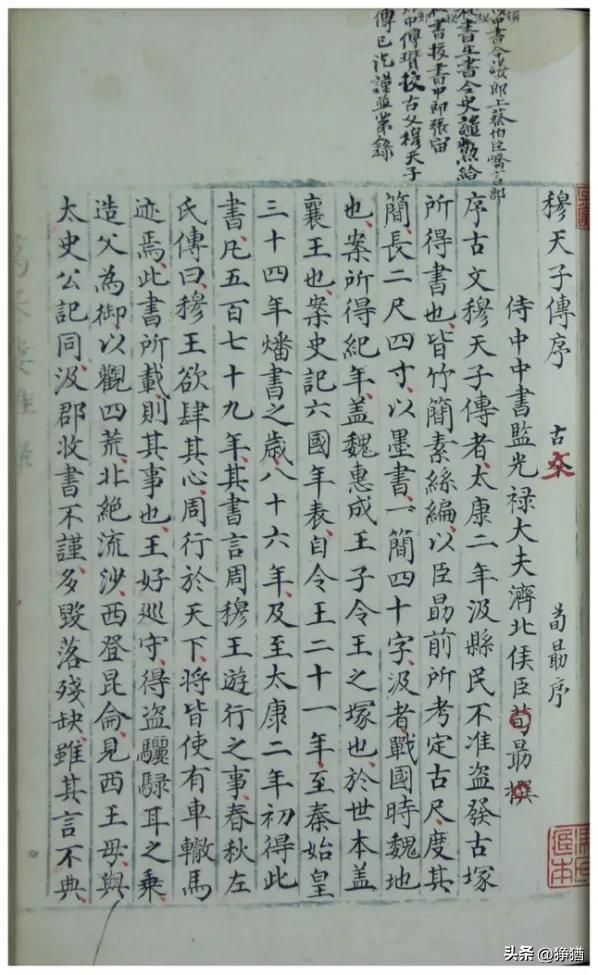 中書令議郎上蔡伯臣嶠言部
秘書主書令史譴勲給
秘書校書中郎張宙
郎中傅瓚校古文穆天子
傳已訖謹並第錄
穆天子傳序 古文 荀勗序
侍中中書監光禄大夫濟北侯臣荀勗撰
序古文穆天子傳者太康二年汲縣民不准盜發古塚
所得書也皆竹簡素絲編以臣勗前所考定古尺度其
簡長二尺四寸以墨書一簡四十字汲者戰國時魏地
也案所得紀年盖魏惠成王子令王之塚也於世本盖
襄王也案史記六國年表自令王二十一年至秦始皇
三十四年燔書之歲八十六年及至太康二年初得此
書凡五百七十九年其書言周穆王遊行之事春秋左
氏傳曰穆王欲肆其心周行於天下將皆使有車轍馬
迹焉此書所載則其事也王好巡守得盜驪騄耳之乗
造父為御以觀四荒北絶流沙西登昆侖見西王母與
太史公記同汲郡收書不謹多毀落殘缺雖其言不典
头条 @狰猶